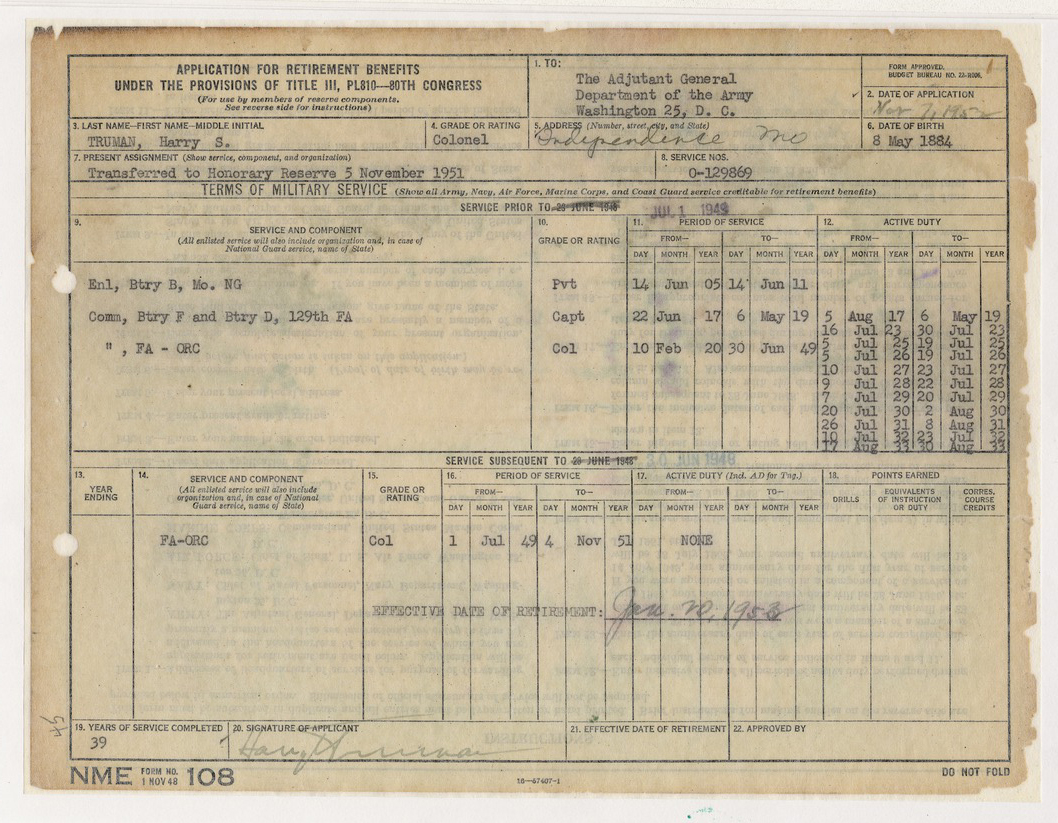 APPLICATION FOR RETIREMENT BENEFITS
UNDER THE PROVISIONS OF TITLE III, PL810—80TH CONGRESS
(For use by members of reserve components.
See reverse side for instructions)
1. TO:
The Adjutant General
Department of the Army
Washington 25, D. C.
FORM APPROVED.
BUDGET BUREAU NO. 22-R006.
2. DATE OF APPLICATION
Nov 7, 1952
3. LAST NAME—FIRST NAME—MIDDLE INITIAL
TRUMAN, Harry S.
4. GRADE OR RATING
Colonel
5. ADDRESS (Number, street, city, and State)
Independence Mo
6. DATE OF BIRTH
8 May 1884
7. PRESENT ASSIGNMENT (Show service, component, and organization)
Transferred to Honorary Reserve 5 November 1951
8. SERVICE NOS.
O-129869
TERMS OF MILITARY SERVICE (Show all Army, Navy, Air Force, Marine Corps, and Coast Guard service creditable for retirement benefits)
SERVICE PRIOR TO 29 JUNE 1948 JUL 1 1949
9. SERVICE AND COMPONENT
(All enlisted service will also include organization and, in case of
National Guard service, name of State)
10. GRADE OR RATING
11. PERIOD OF SERVICE
12. ACTIVE DUTY
FROM— TO— FROM— TO—
DAY MONTH YEAR DAY MONTH YEAR DAY MONTH YEAR DAY MONTH YEAR
Enl, Btry B, Mo. NG Pvt 14 Jun 05 14 Jun 11
Comm, Btry F and Btry D, 129th FA Capt 22 Jun 17 6 May 19 5 Aug 17 6 May 19
16 Jul 23 30 Jul 23
" , FA - ORC Col 10 Feb 20 30 Jun 49 5 Jul 25 19 Jul 25
5 Jul 26 19 Jul 26
10 Jul 27 23 Jul 27
9 Jul 28 22 Jul 28
7 Jul 29 20 Jul 29
20 Jul 30 2 Aug 30
26 Jul 31 8 Aug 31
10 Jul 32 23 Jul 32
17 Aug 33 30 Aug 33
SERVICE SUBSEQUENT TO 28 JUNE 1948 30 JUN 1949
13. YEAR ENDING
14. SERVICE AND COMPONENT
(All enlisted service will also include
organization and, in case of National
Guard service, name of State)
15. GRADE OR RATING
16. PERIOD OF SERVICE
17. ACTIVE DUTY (Incl. AD for Tng.)
18. POINTS EARNED
FROM— TO— FROM— TO—
DAY MONTH YEAR DAY MONTH YEAR DAY MONTH YEAR DAY MONTH YEAR
DRILLS
EQUIVALENTS OF INSTRUCTION OR DUTY
CORRES. COURSE CREDITS
FA-ORC Col 1 Jul 49 4 Nov 51 NONE
EFFECTIVE DATE OF RETIREMENT: Jan. 20, 1953
19. YEARS OF SERVICE COMPLETED
39
20. SIGNATURE OF APPLICANT
Harry S Truman
21. EFFECTIVE DATE OF RETIREMENT
22. APPROVED BY
45
NME FORM NO. 108
1 NOV 48
16—57407-1
DO NOT FOLD